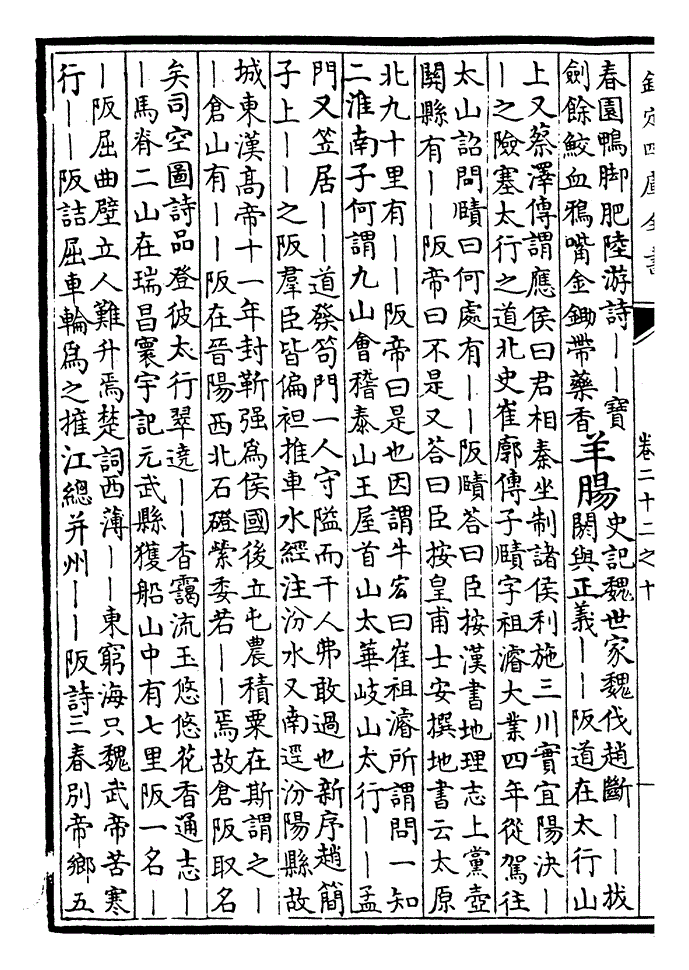 欽定四庫全書
卷二十二之十
春園鴨脚肥陸游詩——寶
劍餘鮫血鴉嘴金鋤帶藥香
羊腸
史記魏世家魏伐趙斷——拔
閼與正義——阪道在太行山
上又蔡澤傳謂應侯曰君相秦坐制諸侯利施三川實宜陽決—
—之險塞太行之道北史崔廓傳子賾字祖濬大業四年從駕往
太山詔問賾曰何處有——阪賾答曰臣按漢書地理志上黨壺
關縣有——阪帝曰不是又答曰臣按皇甫士安撰地書云太原
北九十里有——阪帝曰是也因謂牛宏曰崔祖濬所謂問一知
二淮南子何謂九山會稽泰山王屋首山太華岐山太行——孟
門又笠居——道發笱門一人守隘而千人弗敢過也新序趙簡
子上——之阪羣臣皆偏袒推車水經注汾水又南逕汾陽縣故
城東漢髙帝十一年封靳强為侯國後立屯農積粟在斯謂之—
—倉山有——阪在晉陽西北石磴縈委若——焉故倉阪取名
矣司空圖詩品登彼太行翠遶——杳靄流玉悠悠花香通志—
—馬脊二山在瑞昌寰宇記元武縣獲船山中有七里阪一名—
—阪屈曲壁立人難升焉楚詞西薄——東窮海只魏武帝苦寒
行——阪詰屈車輪爲之摧江總并州——阪詩三春別帝鄉五